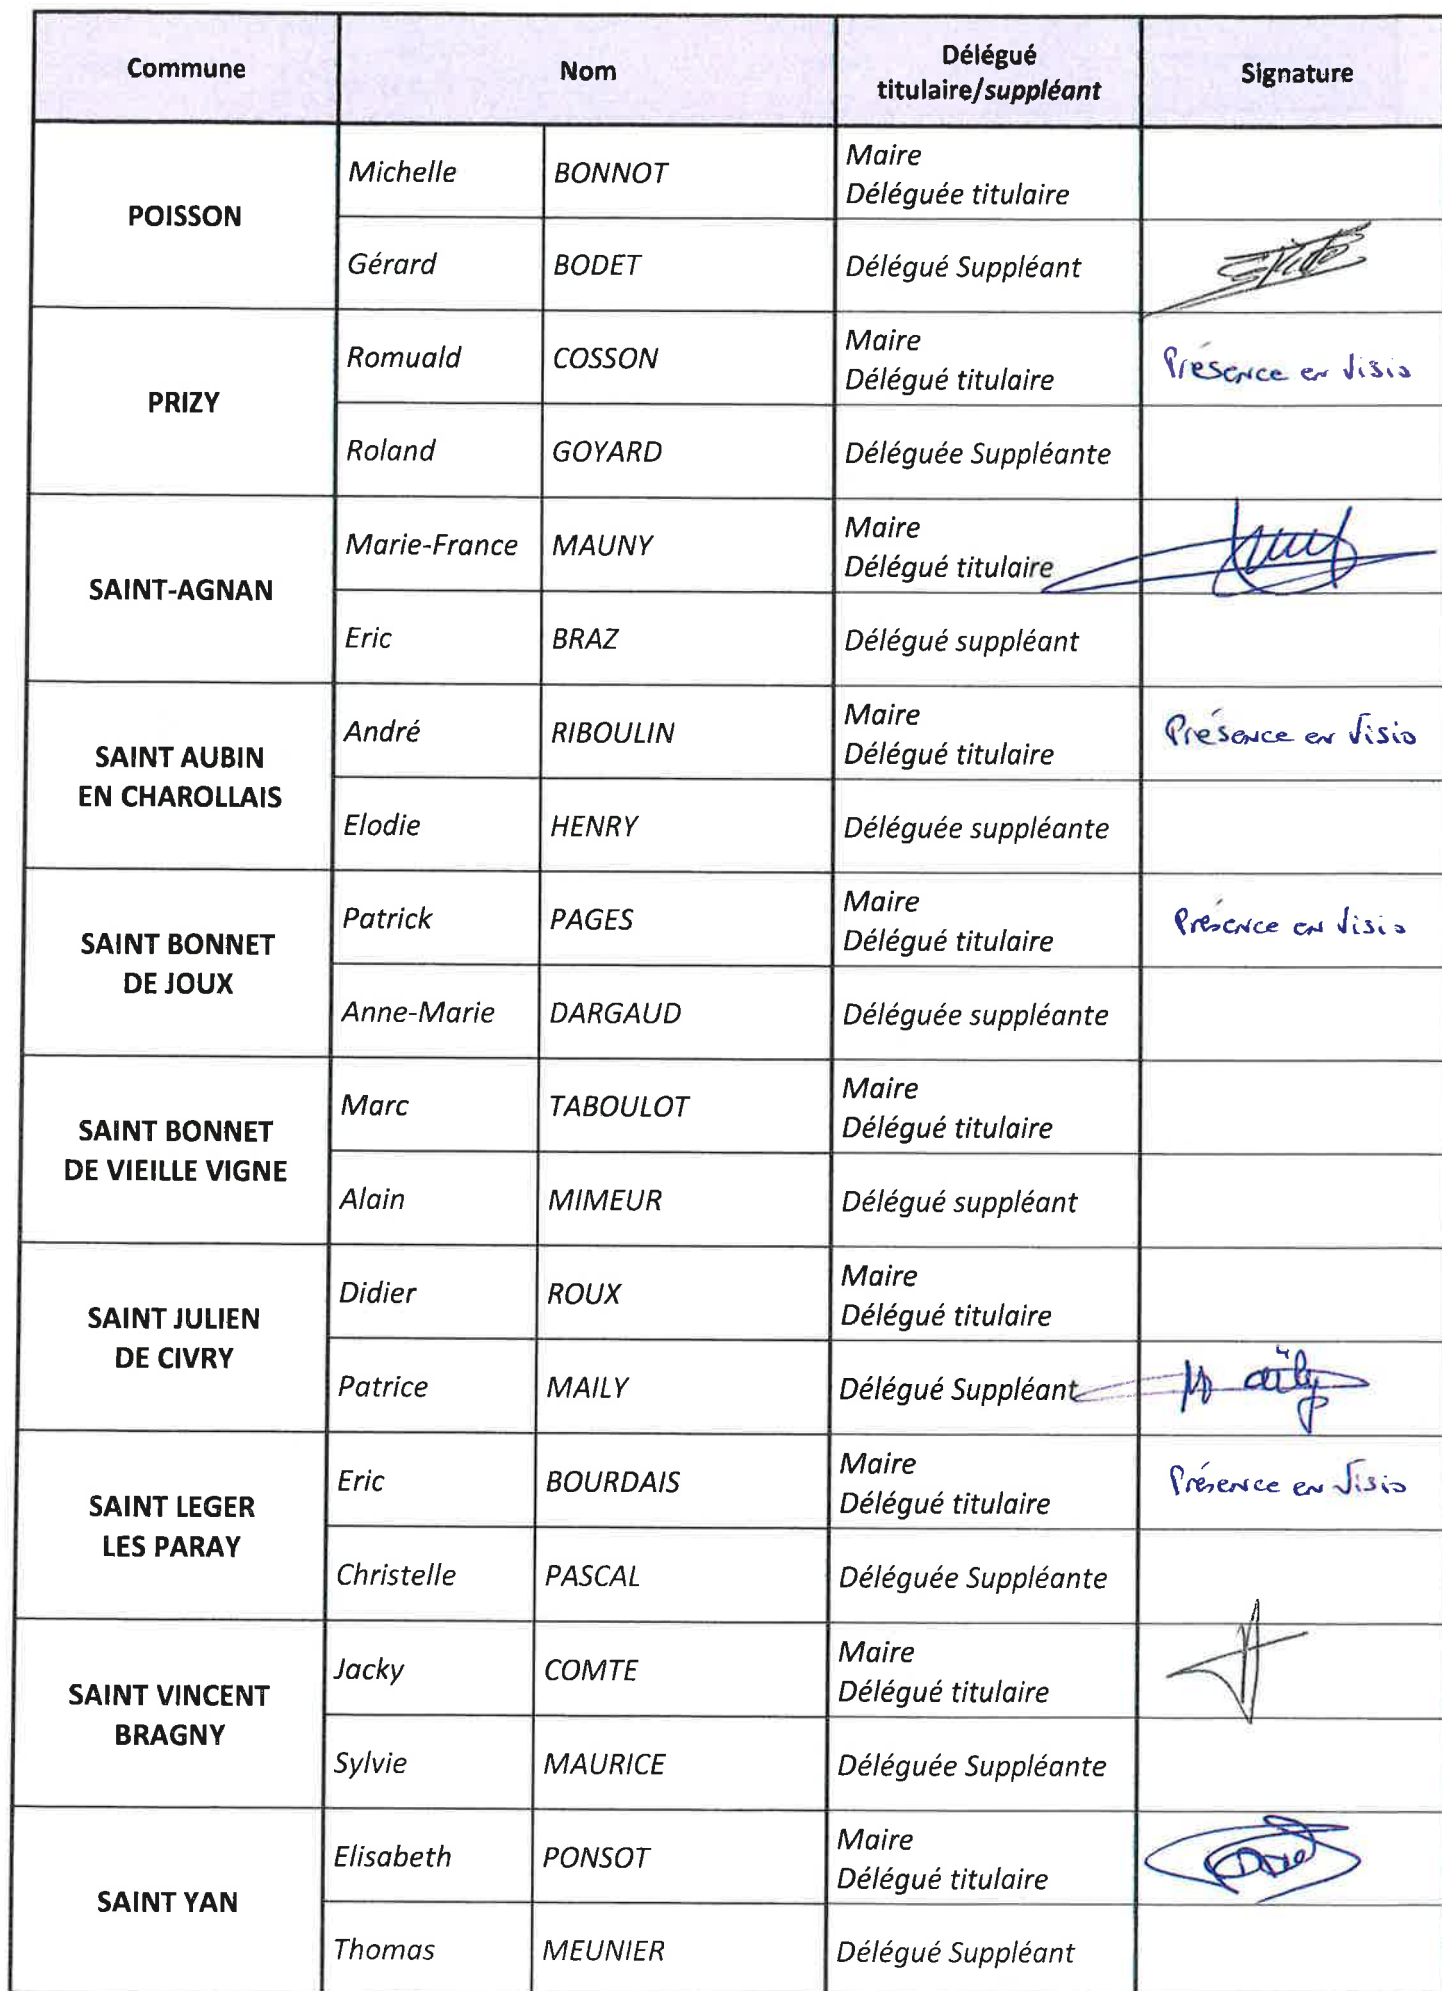 Commune
Nom
Délégué
titulaire/suppléant
Signature
POISSON
Michelle
BONNOT
Maire
Déléguée titulaire
Gérard
BODET
Délégué Suppléant
PRIZY
Romuald
COSSON
Maire
Délégué titulaire
Présence en Visio
Roland
GOYARD
Déléguée Suppléante
SAINT-AGNAN
Marie-France
MAUNY
Maire
Délégué titulaire
Eric
BRAZ
Délégué suppléant
SAINT AUBIN
EN CHAROLLAIS
André
RIBOULIN
Maire
Délégué titulaire
Présence en Visio
Elodie
HENRY
Déléguée suppléante
SAINT BONNET
DE JOUX
Patrick
PAGES
Maire
Délégué titulaire
Présence en Visio
Anne-Marie
DARGAUD
Déléguée suppléante
SAINT BONNET
DE VIEILLE VIGNE
Marc
TABOULOT
Maire
Délégué titulaire
Alain
MIMEUR
Délégué suppléant
SAINT JULIEN
DE CIVRY
Didier
ROUX
Maire
Délégué titulaire
Patrice
MAILY
Délégué Suppléant
SAINT LEGER
LES PARAY
Eric
BOURDAIS
Maire
Délégué titulaire
Présence en Visio
Christelle
PASCAL
Déléguée Suppléante
SAINT VINCENT
BRAGNY
Jacky
COMTE
Maire
Délégué titulaire
Sylvie
MAURICE
Déléguée Suppléante
SAINT YAN
Elisabeth
PONSOT
Maire
Délégué titulaire
Thomas
MEUNIER
Délégué Suppléant